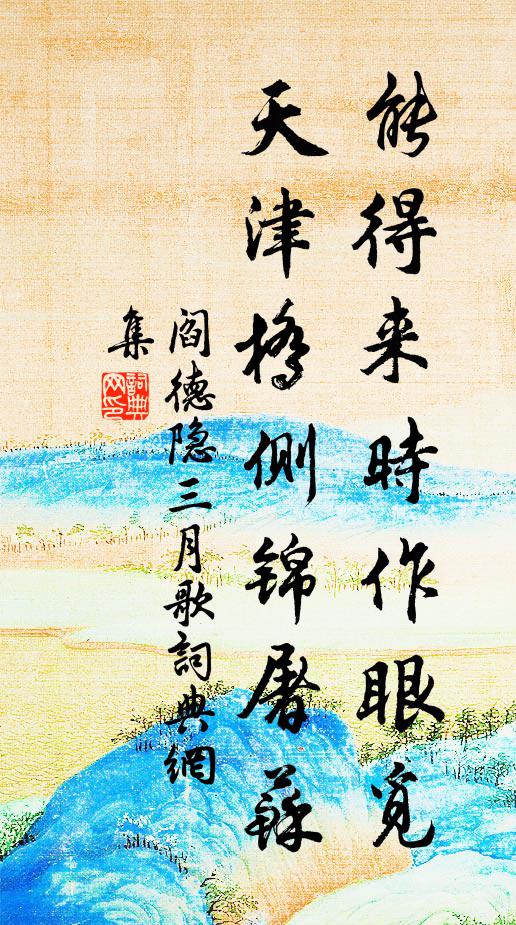 能得来時作眼覓
天津橋側錦屠蘇
閻德隐三月歌詞典網
集
詞典
网印